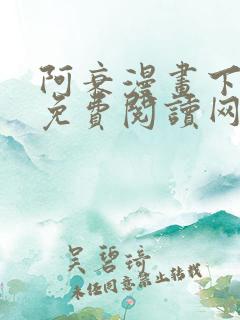 阿衰漫畫下
免費閱讀网
吴碧琦
未经同意禁止转载